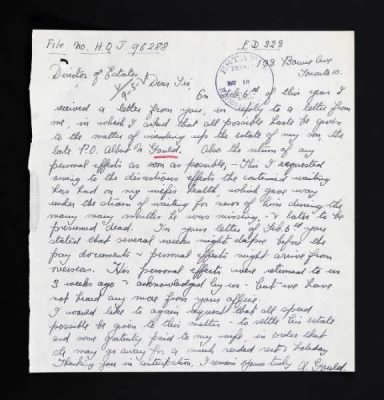 File No. H.Q J 96288 F D 323
193 Bowie Ave
Toronto 10.
ESTATES
Director of Estates
Dear Sir,
On Feb. 6th of this year I
received a letter from you, in reply to a letter from
me, in which I asked that all possible haste be given
to the matter of winding up the estate of my son the
late P.O. Albert Gould. Also the return of any
personal effects as soon as possible, - This I requested
owing to the disastrous effects the continued waiting
has had on my wife's health, which gave way
under the strain of waiting for news of him during the
many many months he was missing - & later to be
presumed dead. In your letter of Feb. 6th you
stated that several weeks might elapse before the
pay documents & personal effects might arrive from
overseas. His personal effects were returned to us
3 weeks ago & acknowledged by us - but we have
not heard any more from your office.
I would like to again request that all speed
possible be given to this matter - to settle his estate
and some gratuity paid to my wife, in order that
she may go away for a much needed rest & holiday
Thanking you in anticipation, I remain yours truly A Gould